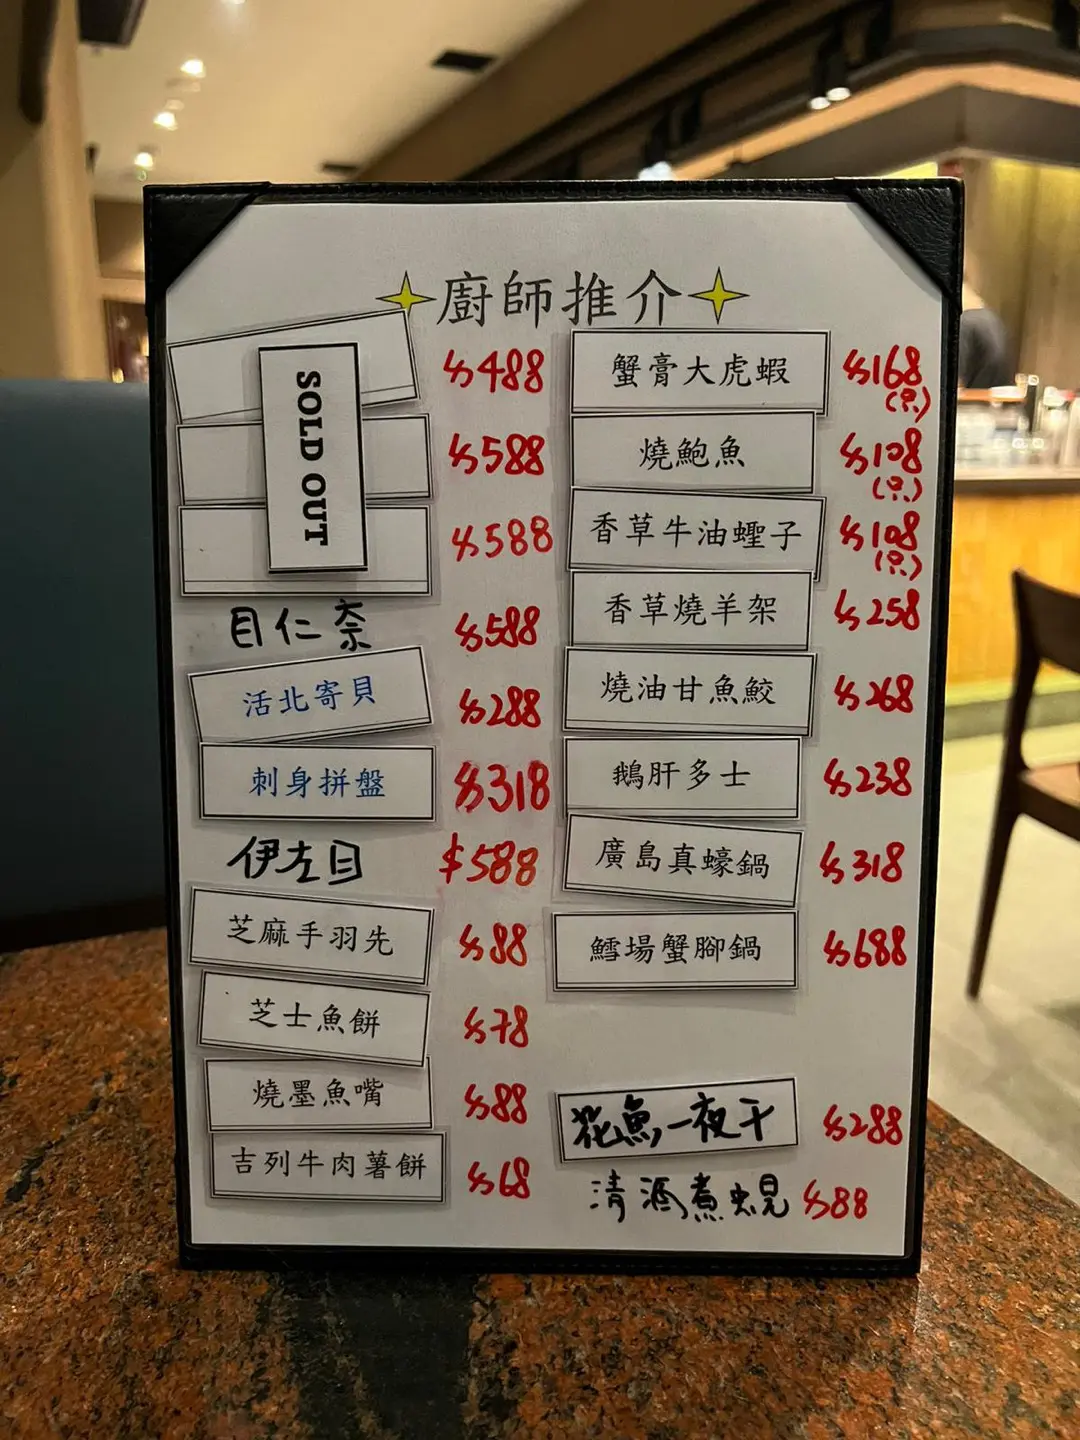 廚師推介
SOLD OUT
$488
$588
$588
目仁奈 $588
活北寄貝 $288
刺身拼盤 $318
伊左目 $588
芝麻手羽先 $88
芝士魚餅 $78
燒墨魚嘴 $88
吉列牛肉薯餅 $68
蟹膏大虎蝦 $168
(只)
燒鮑魚 $108
(只)
香草牛油蟶子 $108
(只)
香草燒羊架 $258
燒油甘魚鮫 $268
鵝肝多士 $238
廣島真蠔鍋 $318
鱈場蟹腳鍋 $688
花魚一夜干 $288
清酒煮蜆 $88